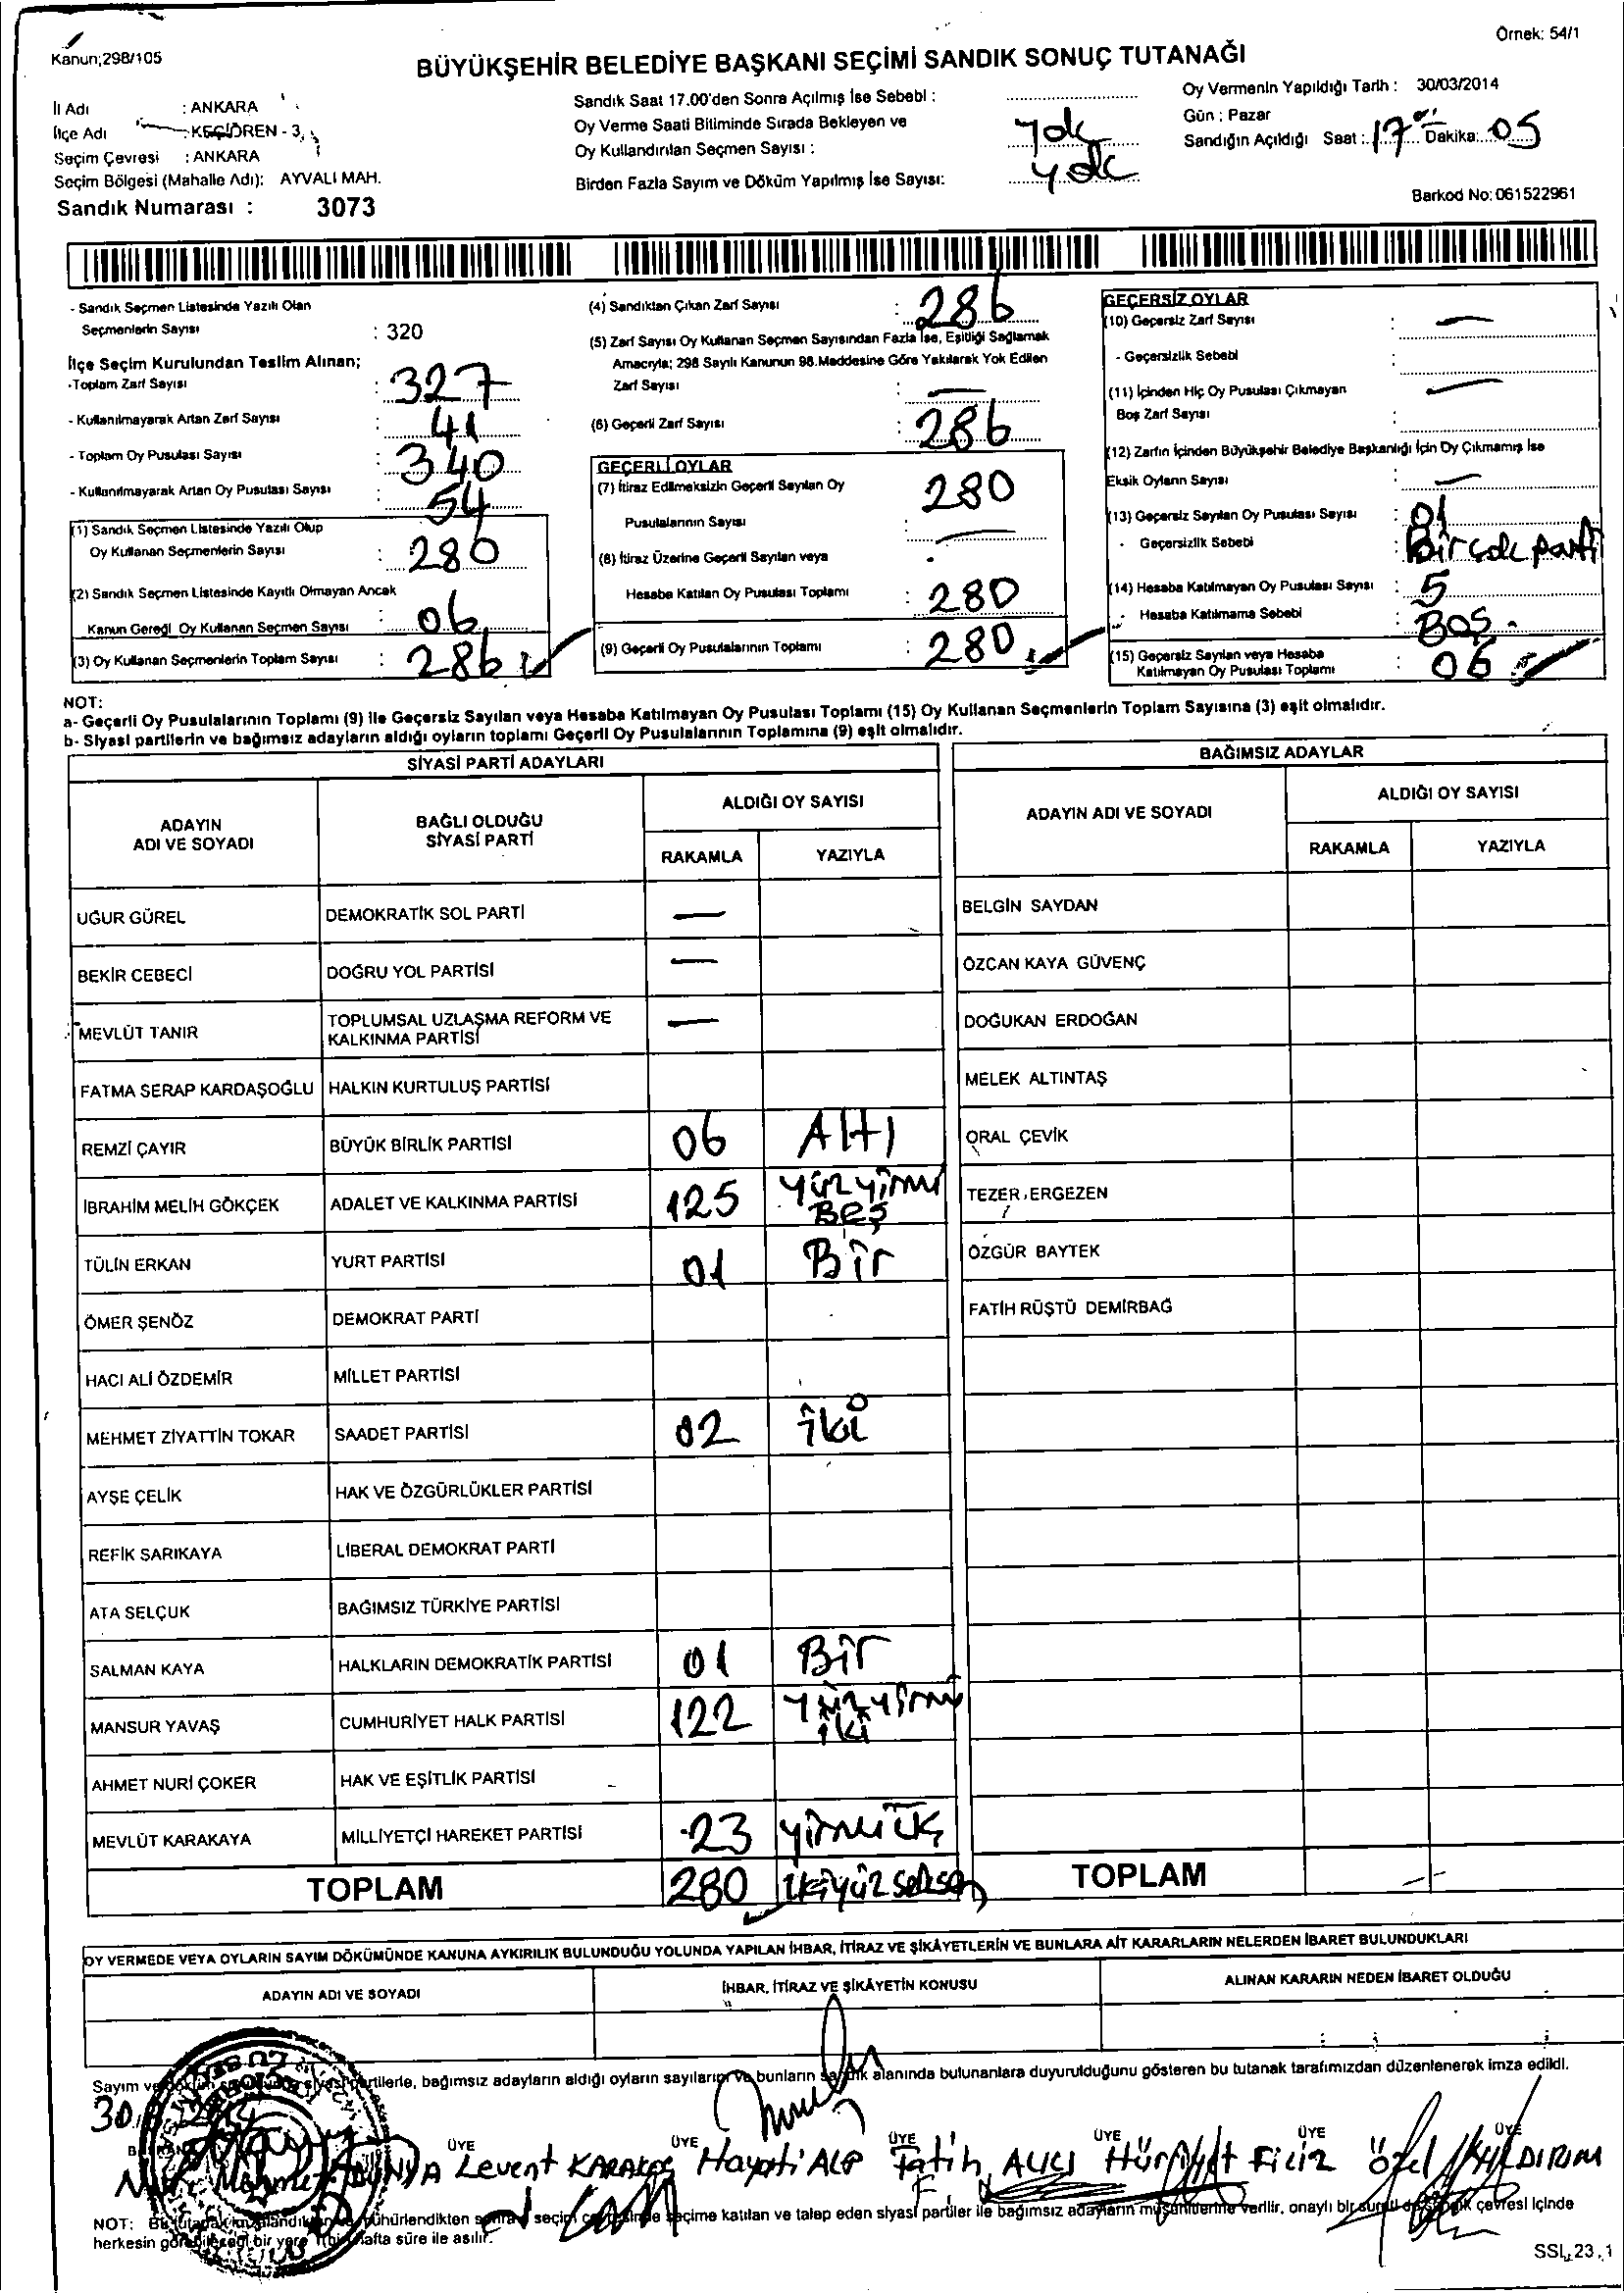 Kanun;298/105
Örnek: 54/1
BÜYÜKŞEHİR BELEDİYE BAŞKANI SEÇİMİ SANDIK SONUÇ TUTANAĞI
İl Adı : ANKARA
İlçe Adı : KEÇİÖREN - 3
Seçim Çevresi : ANKARA
Seçim Bölgesi (Mahalle Adı): AYVALI MAH.
Sandık Numarası : 3073
Sandık Saat 17.00'den Sonra Açılmış İse Sebebi :
Oy Verme Saati Bitiminde Sırada Bekleyen ve
Oy Kullandırılan Seçmen Sayısı : Yok
Birden Fazla Sayım ve Döküm Yapılmış İse Sayısı: Yok
Oy Vermenin Yapıldığı Tarih : 30/03/2014
Gün : Pazar
Sandığın Açıldığı Saat : 17 Dakika: 05
Barkod No: 061522961
- Sandık Seçmen Listesinde Yazılı Olan
Seçmenlerin Sayısı : 320
İlçe Seçim Kurulundan Teslim Alınan;
-Toplam Zarf Sayısı : 327
- Kullanılmayarak Artan Zarf Sayısı : 41
- Toplam Oy Pusulası Sayısı : 340
- Kullanılmayarak Artan Oy Pusulası Sayısı : 54
(1) Sandık Seçmen Listesinde Yazılı Olup
Oy Kullanan Seçmenlerin Sayısı : 280
(2) Sandık Seçmen Listesinde Kayıtlı Olmayan Ancak
Kanun Gereği Oy Kullanan Seçmen Sayısı : 06
(3) Oy Kullanan Seçmenlerin Toplam Sayısı : 286
(4) Sandıktan Çıkan Zarf Sayısı : 286
(5) Zarf Sayısı Oy Kullanan Seçmen Sayısından Fazla İse, Eşitliği Sağlamak
Amacıyla; 298 Sayılı Kanunun 98.Maddesine Göre Yakılarak Yok Edilen
Zarf Sayısı : —
(6) Geçerli Zarf Sayısı : 286
GEÇERLİ OYLAR
(7) İtiraz Edilmeksizin Geçerli Sayılan Oy 280
Pusulalarının Sayısı : —
(8) İtiraz Üzerine Geçerli Sayılan veya
Hesaba Katılan Oy Pusulası Toplamı : 280
(9) Geçerli Oy Pusulalarının Toplamı : 280
GEÇERSİZ OYLAR
(10) Geçersiz Zarf Sayısı : —
- Geçersizlik Sebebi :
(11) İçinden Hiç Oy Pusulası Çıkmayan —
Boş Zarf Sayısı :
(12) Zarfın İçinden Büyükşehir Belediye Başkanlığı İçin Oy Çıkmamış İse
Eksik Oyların Sayısı : —
(13) Geçersiz Sayılan Oy Pusulası Sayısı : 01
- Geçersizlik Sebebi : Bir çok parti
(14) Hesaba Katılmayan Oy Pusulası Sayısı : 5
- Hesaba Katılmama Sebebi : BOŞ
(15) Geçersiz Sayılan veya Hesaba
Katılmayan Oy Pusulası Toplamı : 06
NOT:
a- Geçerli Oy Pusulalarının Toplamı (9) ile Geçersiz Sayılan veya Hesaba Katılmayan Oy Pusulası Toplamı (15) Oy Kullanan Seçmenlerin Toplam Sayısına (3) eşit olmalıdır.
b- Siyasi partilerin ve bağımsız adayların aldığı oyların toplamı Geçerli Oy Pusulalarının Toplamına (9) eşit olmalıdır.
SİYASİ PARTİ ADAYLARI
ADAYIN ADI VE SOYADI
BAĞLI OLDUĞU SİYASİ PARTİ
ALDIĞI OY SAYISI
RAKAMLA YAZIYLA
UĞUR GÜREL DEMOKRATİK SOL PARTİ —
BEKİR CEBECİ DOĞRU YOL PARTİSİ —
MEVLÜT TANIR TOPLUMSAL UZLAŞMA REFORM VE KALKINMA PARTİSİ —
FATMA SERAP KARDAŞOĞLU HALKIN KURTULUŞ PARTİSİ
REMZİ ÇAYIR BÜYÜK BİRLİK PARTİSİ 06 Altı
İBRAHİM MELİH GÖKÇEK ADALET VE KALKINMA PARTİSİ 125 Yüzyirmi Beş
TÜLİN ERKAN YURT PARTİSİ 01 Bir
ÖMER ŞENÖZ DEMOKRAT PARTİ
HACI ALİ ÖZDEMİR MİLLET PARTİSİ
MEHMET ZİYATTİN TOKAR SAADET PARTİSİ 02 iki
AYŞE ÇELİK HAK VE ÖZGÜRLÜKLER PARTİSİ
REFİK SARIKAYA LİBERAL DEMOKRAT PARTİ
ATA SELÇUK BAĞIMSIZ TÜRKİYE PARTİSİ
SALMAN KAYA HALKLARIN DEMOKRATİK PARTİSİ 01 Bir
MANSUR YAVAŞ CUMHURİYET HALK PARTİSİ 122 Yüzyirmi iki
AHMET NURİ ÇOKER HAK VE EŞİTLİK PARTİSİ
MEVLÜT KARAKAYA MİLLİYETÇİ HAREKET PARTİSİ 23 yirmiüç
TOPLAM 280 ikiyüz seksen
BAĞIMSIZ ADAYLAR
ADAYIN ADI VE SOYADI
ALDIĞI OY SAYISI
RAKAMLA YAZIYLA
BELGİN SAYDAN
ÖZCAN KAYA GÜVENÇ
DOĞUKAN ERDOĞAN
MELEK ALTINTAŞ
ORAL ÇEVİK
TEZER ERGEZEN
ÖZGÜR BAYTEK
FATİH RÜŞTÜ DEMİRBAĞ
TOPLAM
OY VERMEDE VEYA OYLARIN SAYIM DÖKÜMÜNDE KANUNA AYKIRILIK BULUNDUĞU YOLUNDA YAPILAN İHBAR, İTİRAZ VE ŞİKÂYETLERİN VE BUNLARA AİT KARARLARIN NELERDEN İBARET BULUNDUKLARI
ADAYIN ADI VE SOYADI İHBAR, İTİRAZ VE ŞİKÂYETİN KONUSU ALINAN KARARIN NEDEN İBARET OLDUĞU
Sayım ve bağımsız adayların aldığı oyların sayılarını ve bunların sandık alanında bulunanlara duyurulduğunu gösteren bu tutanak tarafımızdan düzenlenerek imza edildi.
ÜYE ÜYE ÜYE ÜYE ÜYE ÜYE
Mehmet Levent KARAKOÇ Hayati ALP Fatih ALICI Hürriyet Filiz Özel YILDIRIM
NOT: mühürlendikten sonra seçim çevresinde seçime katılan ve talep eden siyasi partiler ile bağımsız adayların müşahitlerine verilir, onaylı bir sureti de çevresi içinde
herkesin görebileceği bir yere hafta süre ile asılır.
SSL 23.1